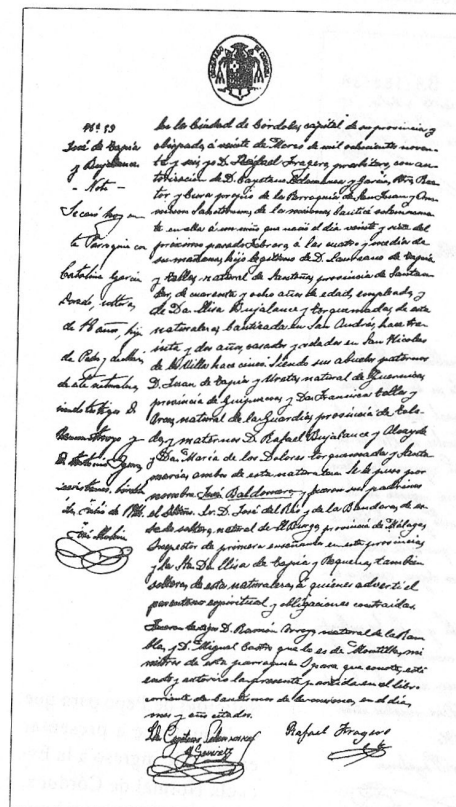 OBISPADO DE CORDOBA
Nº 59
José de Tapia
y Bujalance
- Nota -
Se casó hoy en
Catalina García
soltera,
de 18 años, hija
de Pedro y
de esta naturaleza,
siendo testigos D.
Ramón Arroyo y
D. Antonio
José Molina
En la Ciudad de Córdoba, capital de su provincia y
obispado, a veinte de Marzo de mil ochocientos noven-
ta y seis; yo D. Rafael Fragero, presbítero, con au-
torización de D. Cayetano Salamanca y García, Pbro. Rec-
tor y Cura propio de la Parroquia de San Juan y Om-
nium Sanctorum, de la misma, bauticé solemnemen-
te en ella a un niño que nació el día veinte y siete del
próximo pasado Febrero, a las cuatro y media de
su mañana; hijo legítimo de D. Laureano de Tapia
y Valle, natural de Santoña, provincia de Santan-
der, de cuarenta y ocho años de edad, empleado, y
de Da. Elisa Bujalance y Torquemada, de esta
naturaleza, bautizada en San Andrés, hace tre-
inta y dos años, casados y velados en San Nicolás
de la Villa hace cinco. Siendo sus abuelos paternos
D. Juan de Tapia y natural de
provincia de y Da. Francisca Valle y
Arce, natural de la Guardia, provincia de Tole-
do, y maternos D. Rafael Bujalance y
y Da. María de los Dolores Torquemada y Santa
maría, ambos de esta naturaleza. Se le puso por
nombre José Baldomero y fueron sus padrinos
el Sr. D. José del Río y de la Bandera, de es-
tado soltero, natural de El Burgo, provincia de Málaga,
Inspector de primera enseñanza en esta provincia,
y la Sta. Da. Elisa de Tapia y también
soltera, de esta naturaleza, a quienes advertí el
parentesco espiritual y obligaciones contraidas.
Fueron testigos D. Ramón Arroyo, natural de la Ram-
bla, y D. Miguel Castro que lo es de Montilla, mi-
nistros de esta parroquia. Y para que conste, esti
endo y autorizo la presente partida en el libro
corriente de bautismos de la misma, en el día,
mes y año citados.
Dr. Cayetano Salamanca
y García
Rafael Fragero